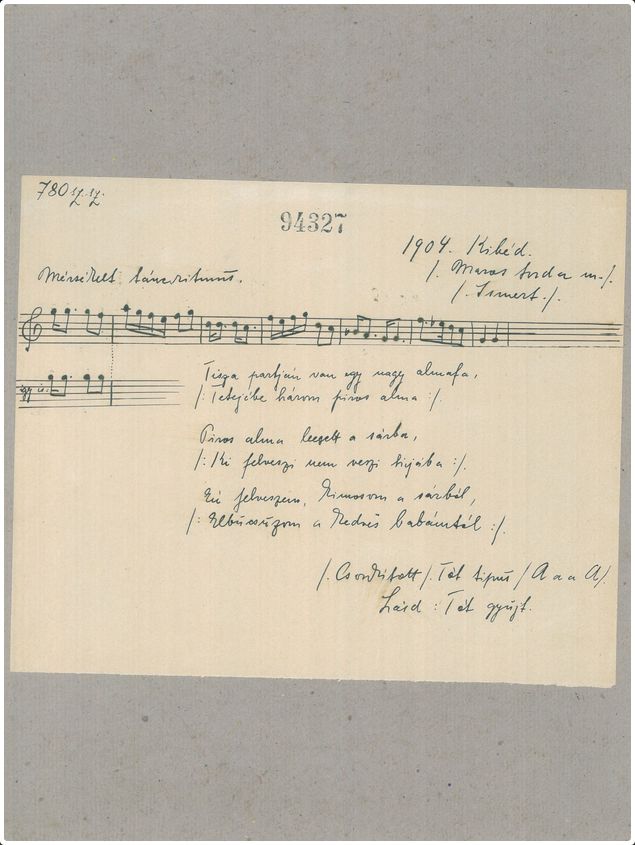 780
94327
1904. Kibéd.
/. Maros torda m./.
Mérsékelt táncritmus.
/. Ismert./.
így is:
Tisza partján van egy nagy almafa,
/: Tetejébe három piros alma :/.
Piros alma leesett a sárba,
/: Ki felveszi nem veszi hijába :/.
Én felveszem, kimosom a sárból,
/: Elbúcsúzom a kedves babámtól :/.
/. Csordított /. Tót tipus / A a a A/.
Lásd : Tót gyűjt.